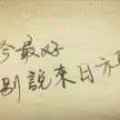 今最好
別說来日方